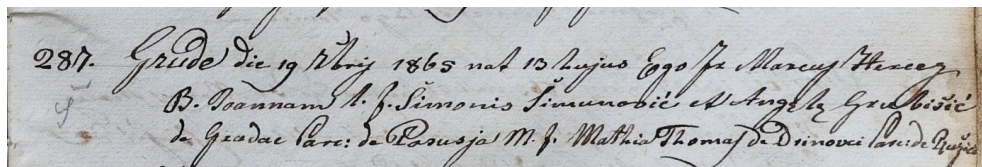 287. Grude die 19 Xbris 1865 nat 13 hujus Ego Fr Marcus Herceg
B. Joannam l. f. Šimonis Šimunović et Angelę Grubišić
de Gradac Par: de Posusja M. f. Mathia Thomas de Drinovci Par: de Ružići